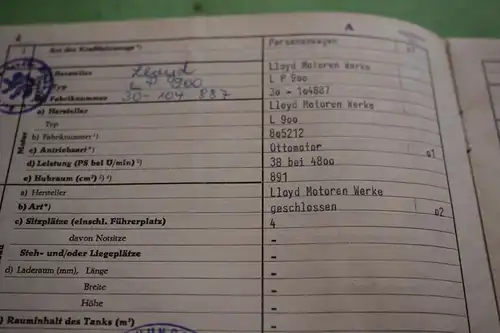 4 A
1 Art des Kraftfahrzeugs*) Personenwagen
Hersteller Lloyd Lloyd Motoren Werke
Typ L P 900 L P 9oo
b) Fabriknummer 30-104 887 3o - 1o4887
a) Hersteller Lloyd Motoren Werke
Typ L 9oo
b) Fabriknummer*) 8o5212
c) Antriebsart*) Ottomotor
d) Leistung (PS bei U/min) 38 bei 48oo
e) Hubraum (cm³) 891
a) Hersteller Lloyd Motoren Werke
b) Art*) geschlossen
c) Sitzplätze (einschl. Führerplatz) 4
davon Notsitze -
Steh- und/oder Liegeplätze -
d) Laderaum (mm), Länge -
Breite -
Höhe -
Rauminhalt des Tanks (m³) -
Motor